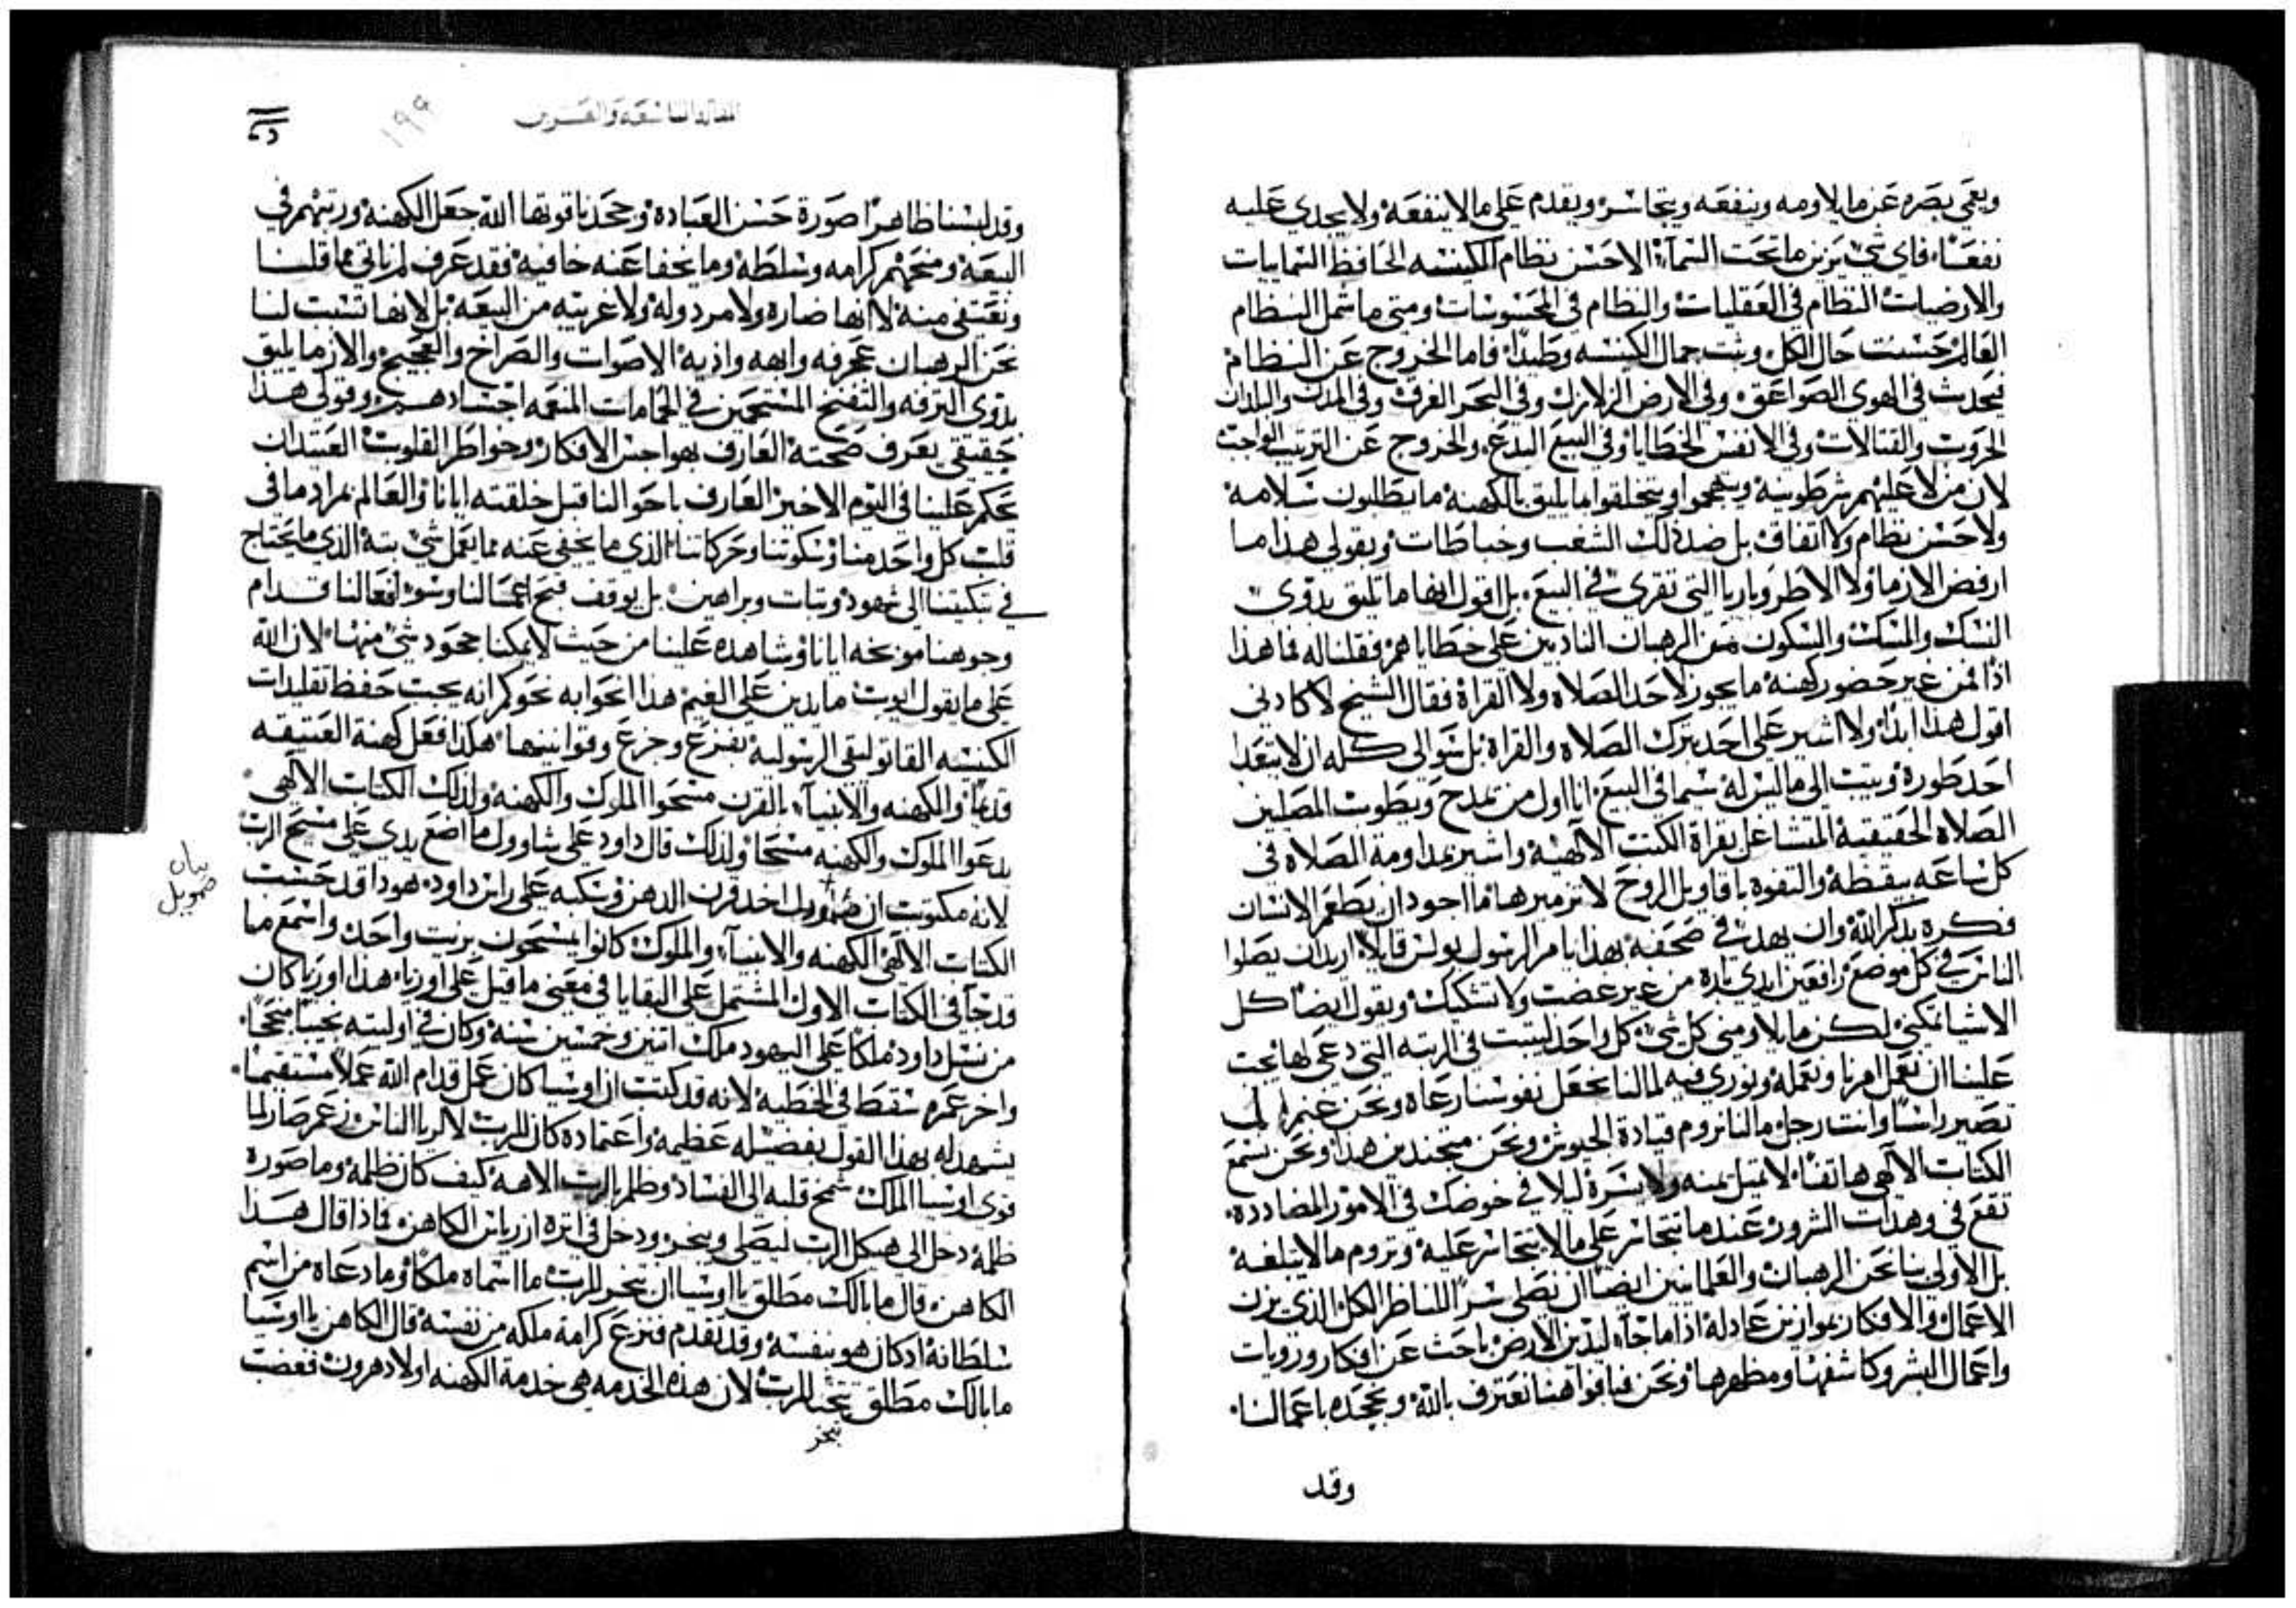 ويعمي بصره عن ما يلاومه وينفعه ويتجاسر ويقدم علي ما لا ينفعه ولا يجدي عليه
نفعًا، فاي شي يزين ما تحت السمآء الا حسن نظام الكنيسه الحافظ السمايات
والارضيات النظام في العقليات والنظام في المحسوسات ومتي ما شمل النظام
العالم حسنت حال الكل وثبت جمال الكنيسه وطيدًا، فاما الخروج عن النظام
فيحدث في الهوي الصواعق، وفي الارض الزلازل وفي البحر الغرق وفي المدن والبلدان
الحروب والقتالات وفي الانفس الخطايا وفي البيع البدع والخروج عن الترتيب الواجب
لان من لا عليهم شرطونيه ويتهجموا ويتخلقوا ما يليق بالكهنة ما يطلبون سلامه
ولا حسن نظام ولا اتفاق بل ضد ذلك الشغب وخباطات وبقولي هذا ما
ارفض الازما ولا الاطروباريا التي تقري في البيع، بل اقول انها ما تليق بذوي
النسك والمسك والسكون من الرهبان النادبين علي خطاياهم فقلنا له فما هذا
اذًا فمن غير حضور كهنة ما يجوز لاحد الصلاه ولا القراة فقال الشيخ لا كادني
اقول هذا ابدًا ولا اشير علي احد بترك الصلاه والقراة بل سوالي كله ان لا يتعدا
احد طوره ويتب الي ما ليس له سيما في البيع، انا اول من يمدح ويطوب المصلين
الصلاه الحقيقية المتشاغل بقراة الكتب الالهية واشير بمداومة الصلاه في
كل ساعه بيقظة والتفوه باقاويل الروح لا تزميرها ما اجود ان يطعم الانسان
فكره بذكر الله وان يهدب في صحفه بهذا يامر الرسول بولس قايلًا، اريد ان يصلوا
الناس في كل موضع رافعين ايدي باره من غير غضب ولا تشكك ويقول ايضًا كل
الاشيا تمكني لكن ما يلاومني كل شي، كل واحد ليثبت في الرتبه التي دعي لها يجب
علينا ان نعقل امرنا ونعمله ونوري فيه لما لنا نجعل نفوسنا رعاه ونحن غنم لم
تصير راسًا وانت رجل ما لنا نروم قيادة الجيوش ونحن متجندين هذا ونحن نسمع
الكتاب الالهي هاتفًا لا تميل يمنه ولا يسرة ليلا في خوضك في الامور المضادده
تقع في وهدات الشرور عندما تتجاسر علي ما لا يتجاسر عليه وتروم ما لا يبلغه
بل الاولي بنا نحن الرهبان والعلمانيين ايضًا ان نصلي سرًا للناظر الكل الذي يزن
الاعمال والافكار بموازين عادله اذا ما جآء ليدين الارض باحث عن افكار ورويات
واعمال البشر وكاشفها ومظهرها ونحن فبافواهنا نعترف بالله ونجحده باعمالنا.
وقد
المقالة التاسعة والعشرين
١٩٩
وقد لبسنا ظاهرًا صورة حسن العبادة وجحدنا قوتها الله جعل الكهنة ورتبهم في
البيعة ومنحهم كرامه وسلطة وما يخفا عنه خافية فقد عرف لم ناتي بما قلنا
ونقتفي منه لا انها ضاره ولا مردولة ولا غريبه من البيعه بل لانها تسبب لنا
نحن الرهبان عجرفه وابهه واذية الاصوات والصراخ والعجيج والازما يليق
بذوي الترفه والتفنخ المستحمين في الحمامات المنعمه اجسادهم وقولي هذا
حقيقي يعرف صحته العارف بهواجس الافكار وخواطر القلوب العتيد ان
يحكم علينا في اليوم الاخير العارف باحوالنا قبل خلقته ايانا والعالم بمراد ما في
قلب كل واحد منا وسكوتنا وحركاتنا الذي ما يخفي عنه مما يعمل شي بته الذي ما يحتاج
في تبكيتنا الي شهود وتبات وبراهين بل يوقف قبح اعمالنا وسو افعالنا قدام
وجوهنا موبخه ايانا وشاهده علينا من حيث لا يمكنا جحود شي منها لان الله
علي ما يقول ايوب ما يدين علي الغيم هذا انحوا به نحوكم انه يجب حفظ تقليدات
الكنيسه القاتوليقي الرسولية بفزع وجزع وقوانينها هكذا فعل كهنة العتيقه
قديمًا والكهنه والانبيآء بالقرن مسحوا الملوك والكهنة ولذلك الكتاب الالهي
يدعوا الملوك والكهنه مسحا ولذلك قال داود علي شاوول ما اضع يدي علي مسيح الرب
لانه مكتوب ان صموويل اخد قرن الدهن وسكبه علي راس داود، هودا قد حسبت
بيان صمويل
الكتاب الالهي الكهنه والانبيآء والملوك كانوا يمسحون بزيت واحد واسمع ما
قد جآ في الكتاب الاول المشتمل علي البقايا في معني ما قيل علي اوزيا، هذا اوزيا كان
من نسل داود ملكًا علي اليهود ملك اتنين وخمسين سنة وكان في اوليته نجيبًا منجحًا
واخر عمره سقط في الخطية لانه قد كتب ان اوسيا كان عمل قدام الله عملًا مستقيمًا
يشهد له بهذا القول بفضيله عظيمه واعتماده كان للرب لا لريا الناس زعم صار لما
قوي اوسيا الملك شمخ قلبه الي الفساد وظلم بالرب الاهه كيف كان ظلمه وما صورة
ظلمه دخل الي هيكل الرب ليصلي ويبخر ودخل في اتره ازرياس الكاهن، فماذا قال هذا
الكاهن، قال ما بالك مطلق يا اوسيا ان تبخر للرب ما اسماه ملكًا وما دعاه من اسم
سلطانه اد كان هو بنفسه وقد تقدم فنزع كرامة ملكه من نفسه قال الكاهن يا اوسيا
ما بالك مطلق تبخر للرب لان هذه الخدمه هي خدمة الكهنه اولاد هرون فغضب
بخر